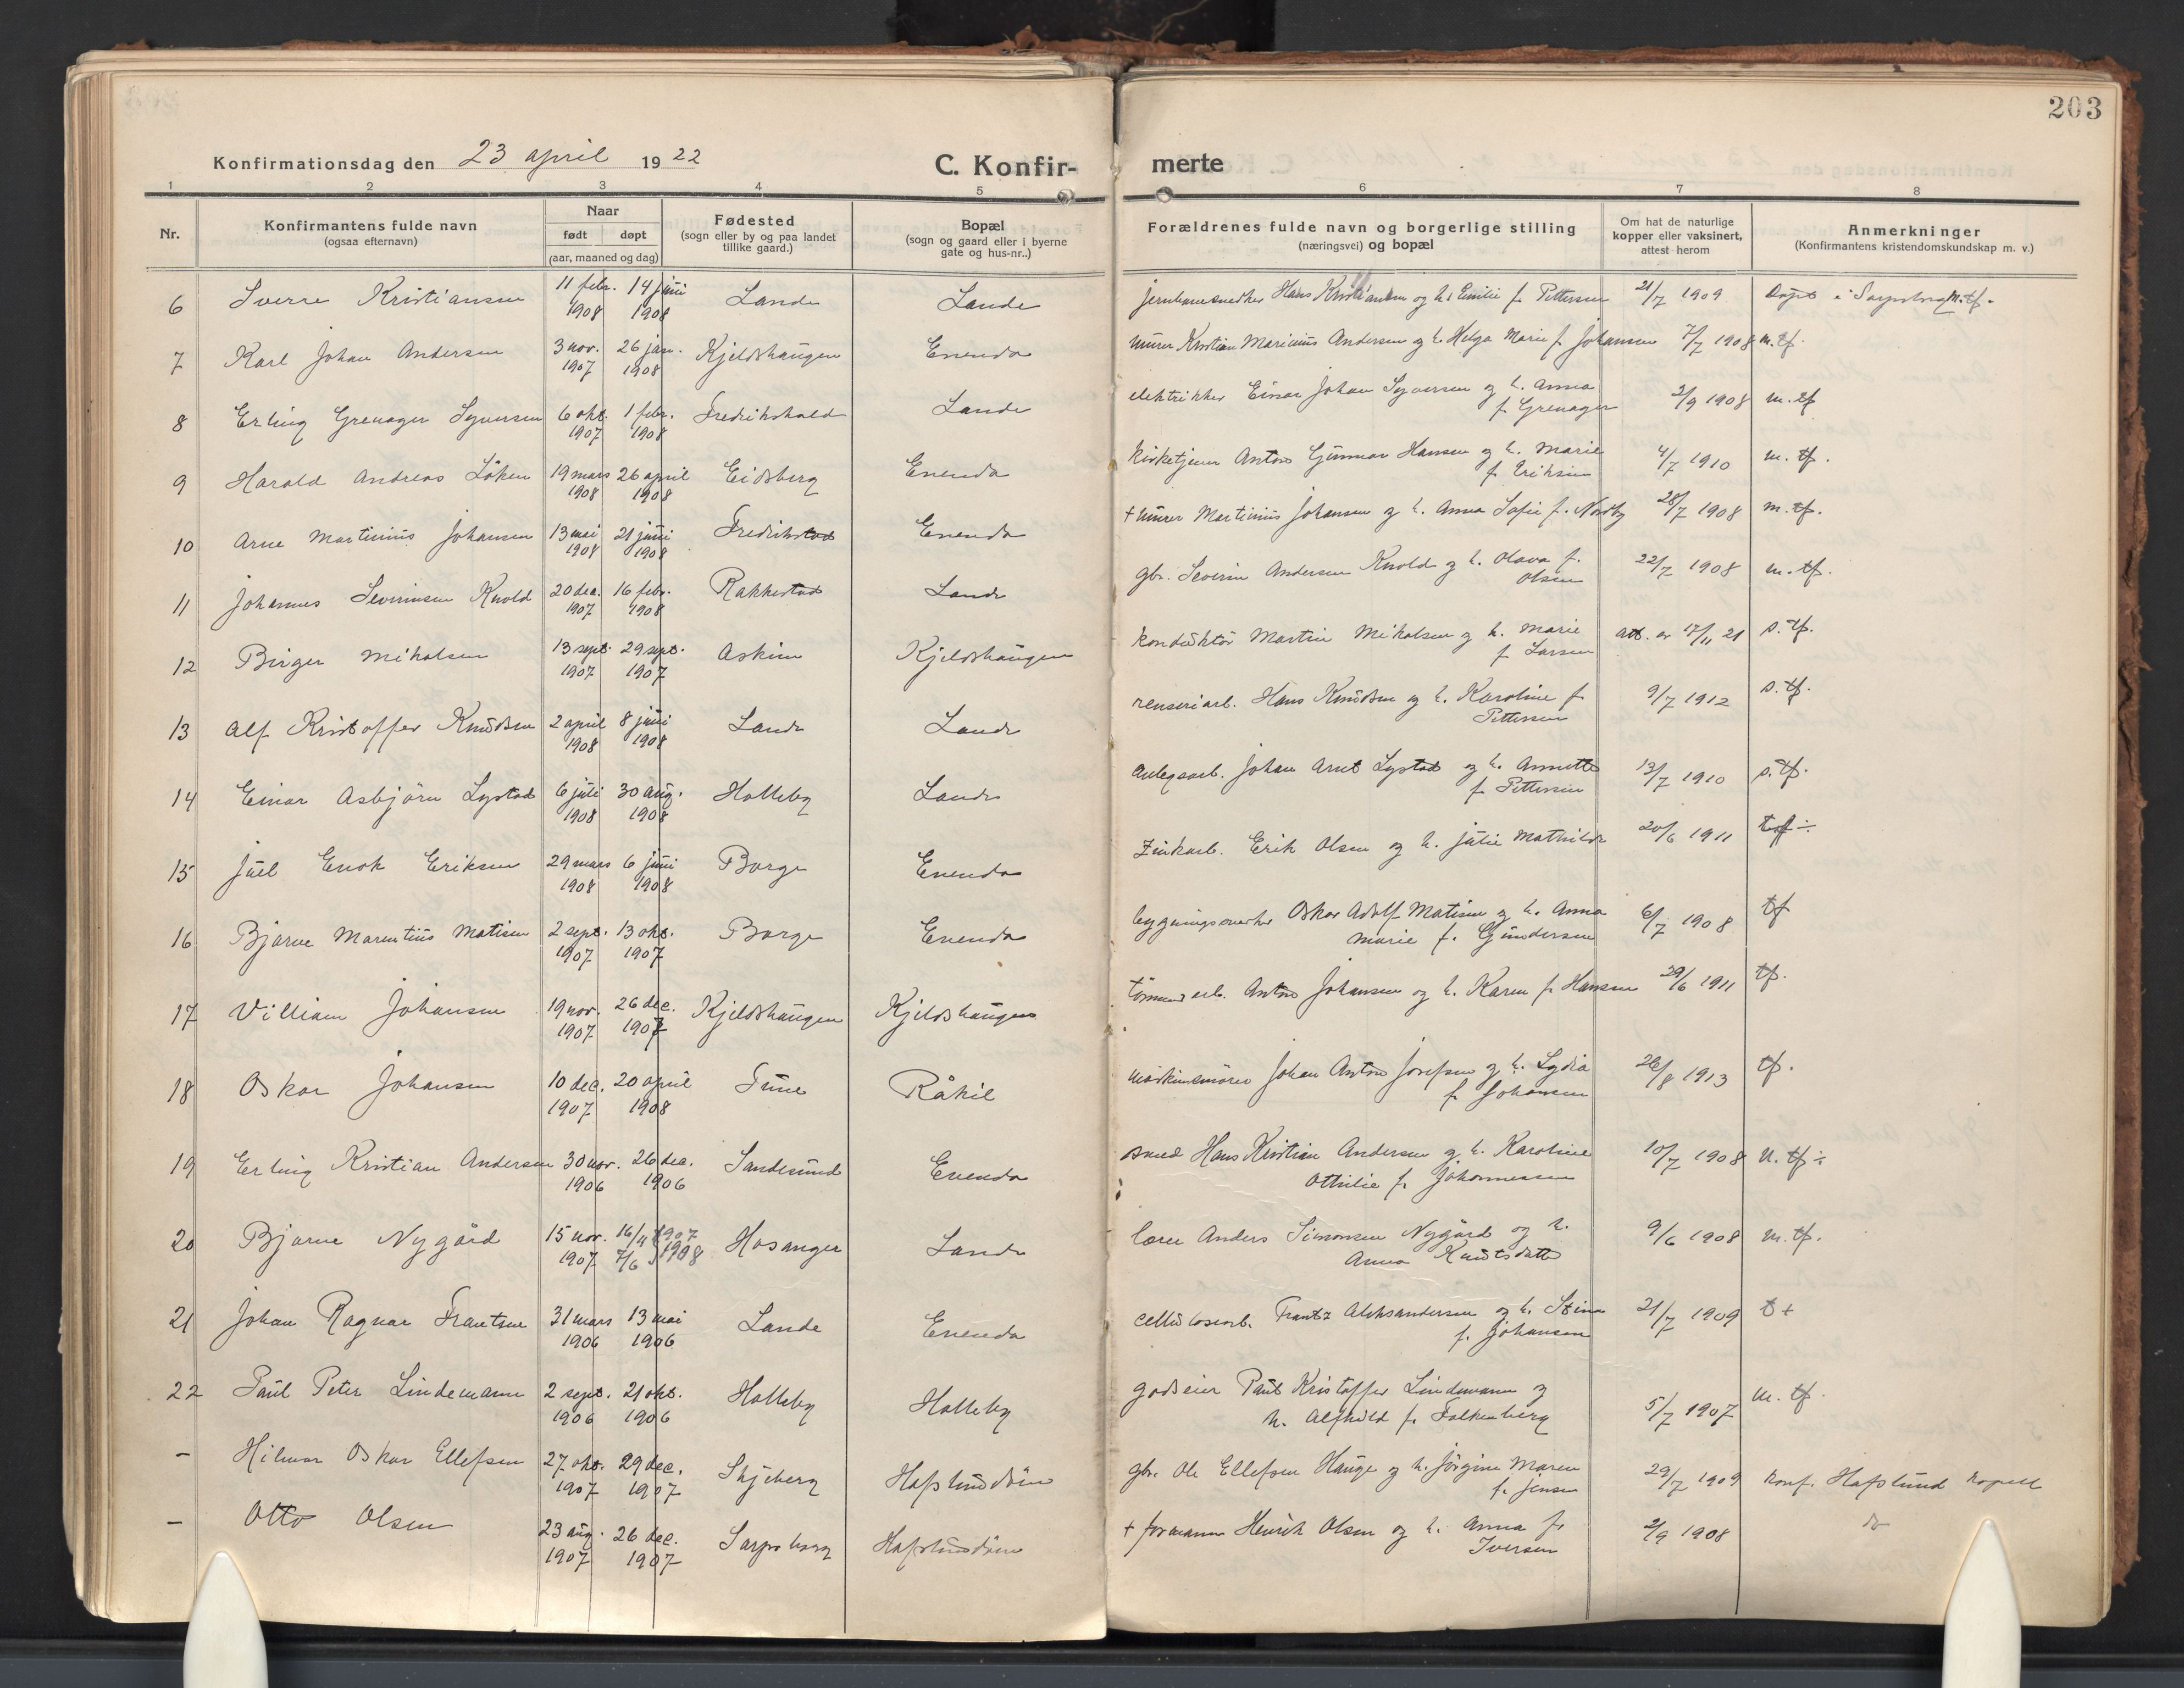 203
Konfirmationsdag den 23 april 1922 C. Konfir- merte
1 2 3 4 5 6 7 8
Nr. Konfirmantens fulde navn (ogsaa efternavn) Naar født døpt (aar, maaned og dag) Fødested (sogn eller by og paa landet tillike gaard.) Bopæl (sogn og gaard eller i byerne gate og hus-nr..) Forældrenes fulde navn og borgerlige stilling (næringsvei) og bopæl Om hat de naturlige kopper eller vaksinert, attest herom Anmerkninger (Konfirmantens kristendomskundskap m. v.)
6 Sverre Kristiansen 11 febr. 1908 14 juni 1908 Lande Lande jernbanesnedker Hans Kristiansen og h. Emilie f. Pettersen 21/7 1909 Døpt i Sarpsborg M.tf.
7 Karl Johan Andersen 3 nov. 1907 26 jan. 1908 Kjeldshaugen Enenda murer Kristian Marinius Andersen og h. Helga Marie f. Johansen 7/7 1908 m.tf.
8 Erling Grenager Syversen 6 okt. 1907 1 febr. 1908 Fredrikshald Lande elektriker Einar Johan Syversen og h. Anna f. Grenager 2/9 1908 m.tf
9 Harald Andreas Løken 19 mars 1908 26 april 1908 Eidsberg Enenda kirketjener Anton Gunnar Hansen og h. Marie f. Eriksen 4/7 1910 m.tf.
10 Arne Martinius Johansen 13 mai 1908 21 juni 1908 Fredrikstad Enenda + murer Martinius Johansen og h. Anna Sofie f. Nordby 28/7 1908 m.tf.
11 Johannes Severinsen Knold 20 dec. 1907 16 febr. 1908 Rakkestad Lande gbr. Severin Andersen Knold og h. Olava f. Olsen 22/7 1908 m.tf.
12 Birger Mikalsen 13 sept. 1907 29 sept. 1907 Askim Kjeldshaugen konduktør Martin Mikalsen og h. Marie f. Larsen att. av 17/11 21 s.tf.
13 Alf Kristoffer Knudsen 2 april 1908 8 juni 1908 Lande Lande renseriarb. Hans Knudsen og h. Karoline f. Pettersen 9/7 1912 s.tf.
14 Einar Asbjörn Lystad 6 juli 1908 30 aug. 1908 Holleby Lande anlegsarb. Johan Arnt Lystad og h. Annette f. Pettersen 13/7 1910 s.tf.
15 Juel Enok Eriksen 29 mars 1908 6 juni 1908 Borge Enenda Zinkarb. Erik Olsen og h. Julie Mathilde 20/6 1911 tf ÷
16 Bjarne Marentius Matisen 2 sept. 1907 13 okt. 1907 Borge Enenda bygningssnekker Oskar Adolf Matisen og h. Anna Marie f. Gundersen 6/7 1908 tf
17 Villiam Johansen 19 nov. 1907 26 dec. 1907 Kjeldshaugen Kjeldshaugen tømmerarb. Anton Johansen og h. Karen f. Hansen 29/6 1911 tf.
18 Oskar Johansen 10 dec. 1907 20 april 1908 Tune Råkil maskinsmører Johan Anton Josefsen og h. Lydia f. Johansen 26/8 1913 tf.
19 Erling Kristian Andersen 30 nov. 1906 26 dec. 1906 Sandesund Enenda smed Hans Kristian Andersen og h. Karoline Othilie f. Johannessen 10/7 1908 N.tf ÷
20 Bjarne Nygård 15 nov. 1907 16/11 1907 7/6 1908 Hosanger Lande lærer Anders Simonsen Nygård og h. Anna Knutsdatter 9/6 1908 m.tf.
21 Johan Ragnar Frantsen 31 mars 1906 13 mai 1906 Lande Enenda cellulosearb. Frantz Aleksandersen og h. Stina f. Johansen 21/7 1909 t+
22 Paul Peter Lindemann 2 sept. 1906 21 okt. 1906 Holleby Holleby godseier Paul Kristoffer Lindemann og h. Alfhild f. Falkenberg 5/7 1907 M.tf.
– Hilmar Oskar Ellefsen 27 okt. 1907 29 dec. 1907 Skjeberg Hafslundsöen gbr. Ole Ellefsen Hauge og h. Jörgine Maren f. Jensen 29/7 1909 konf. Hafslund kapell
– Otto Olsen 23 aug. 1907 26 dec. 1907 Sarpsborg Hafslundsöen + formann Henrik Olsen og h. Anna f. Iversen 2/9 1908 do